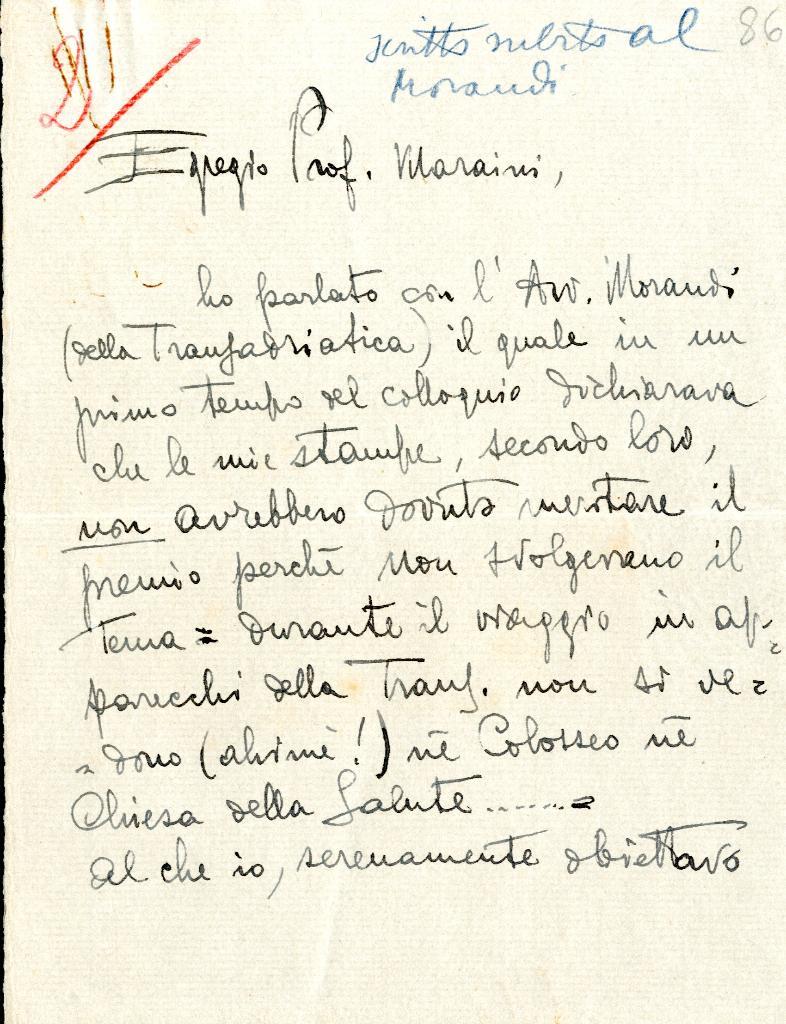 scritto subito al 86
Morandi
Egregio Prof. Maraini,
ho parlato con l'Avv. Morandi
(della Transadriatica) il quale in un
primo tempo del colloquio dichiarava
che le mie stampe, secondo loro,
non avrebbero dovuto meritare il
premio perchè non svolgevano il
tema = durante il viaggio in ap=
parecchi della Trans. non si ve=
=dono (ahimè!) nè Colosseo nè
Chiesa della Salute.......=
Al che io, serenamente obiettavo